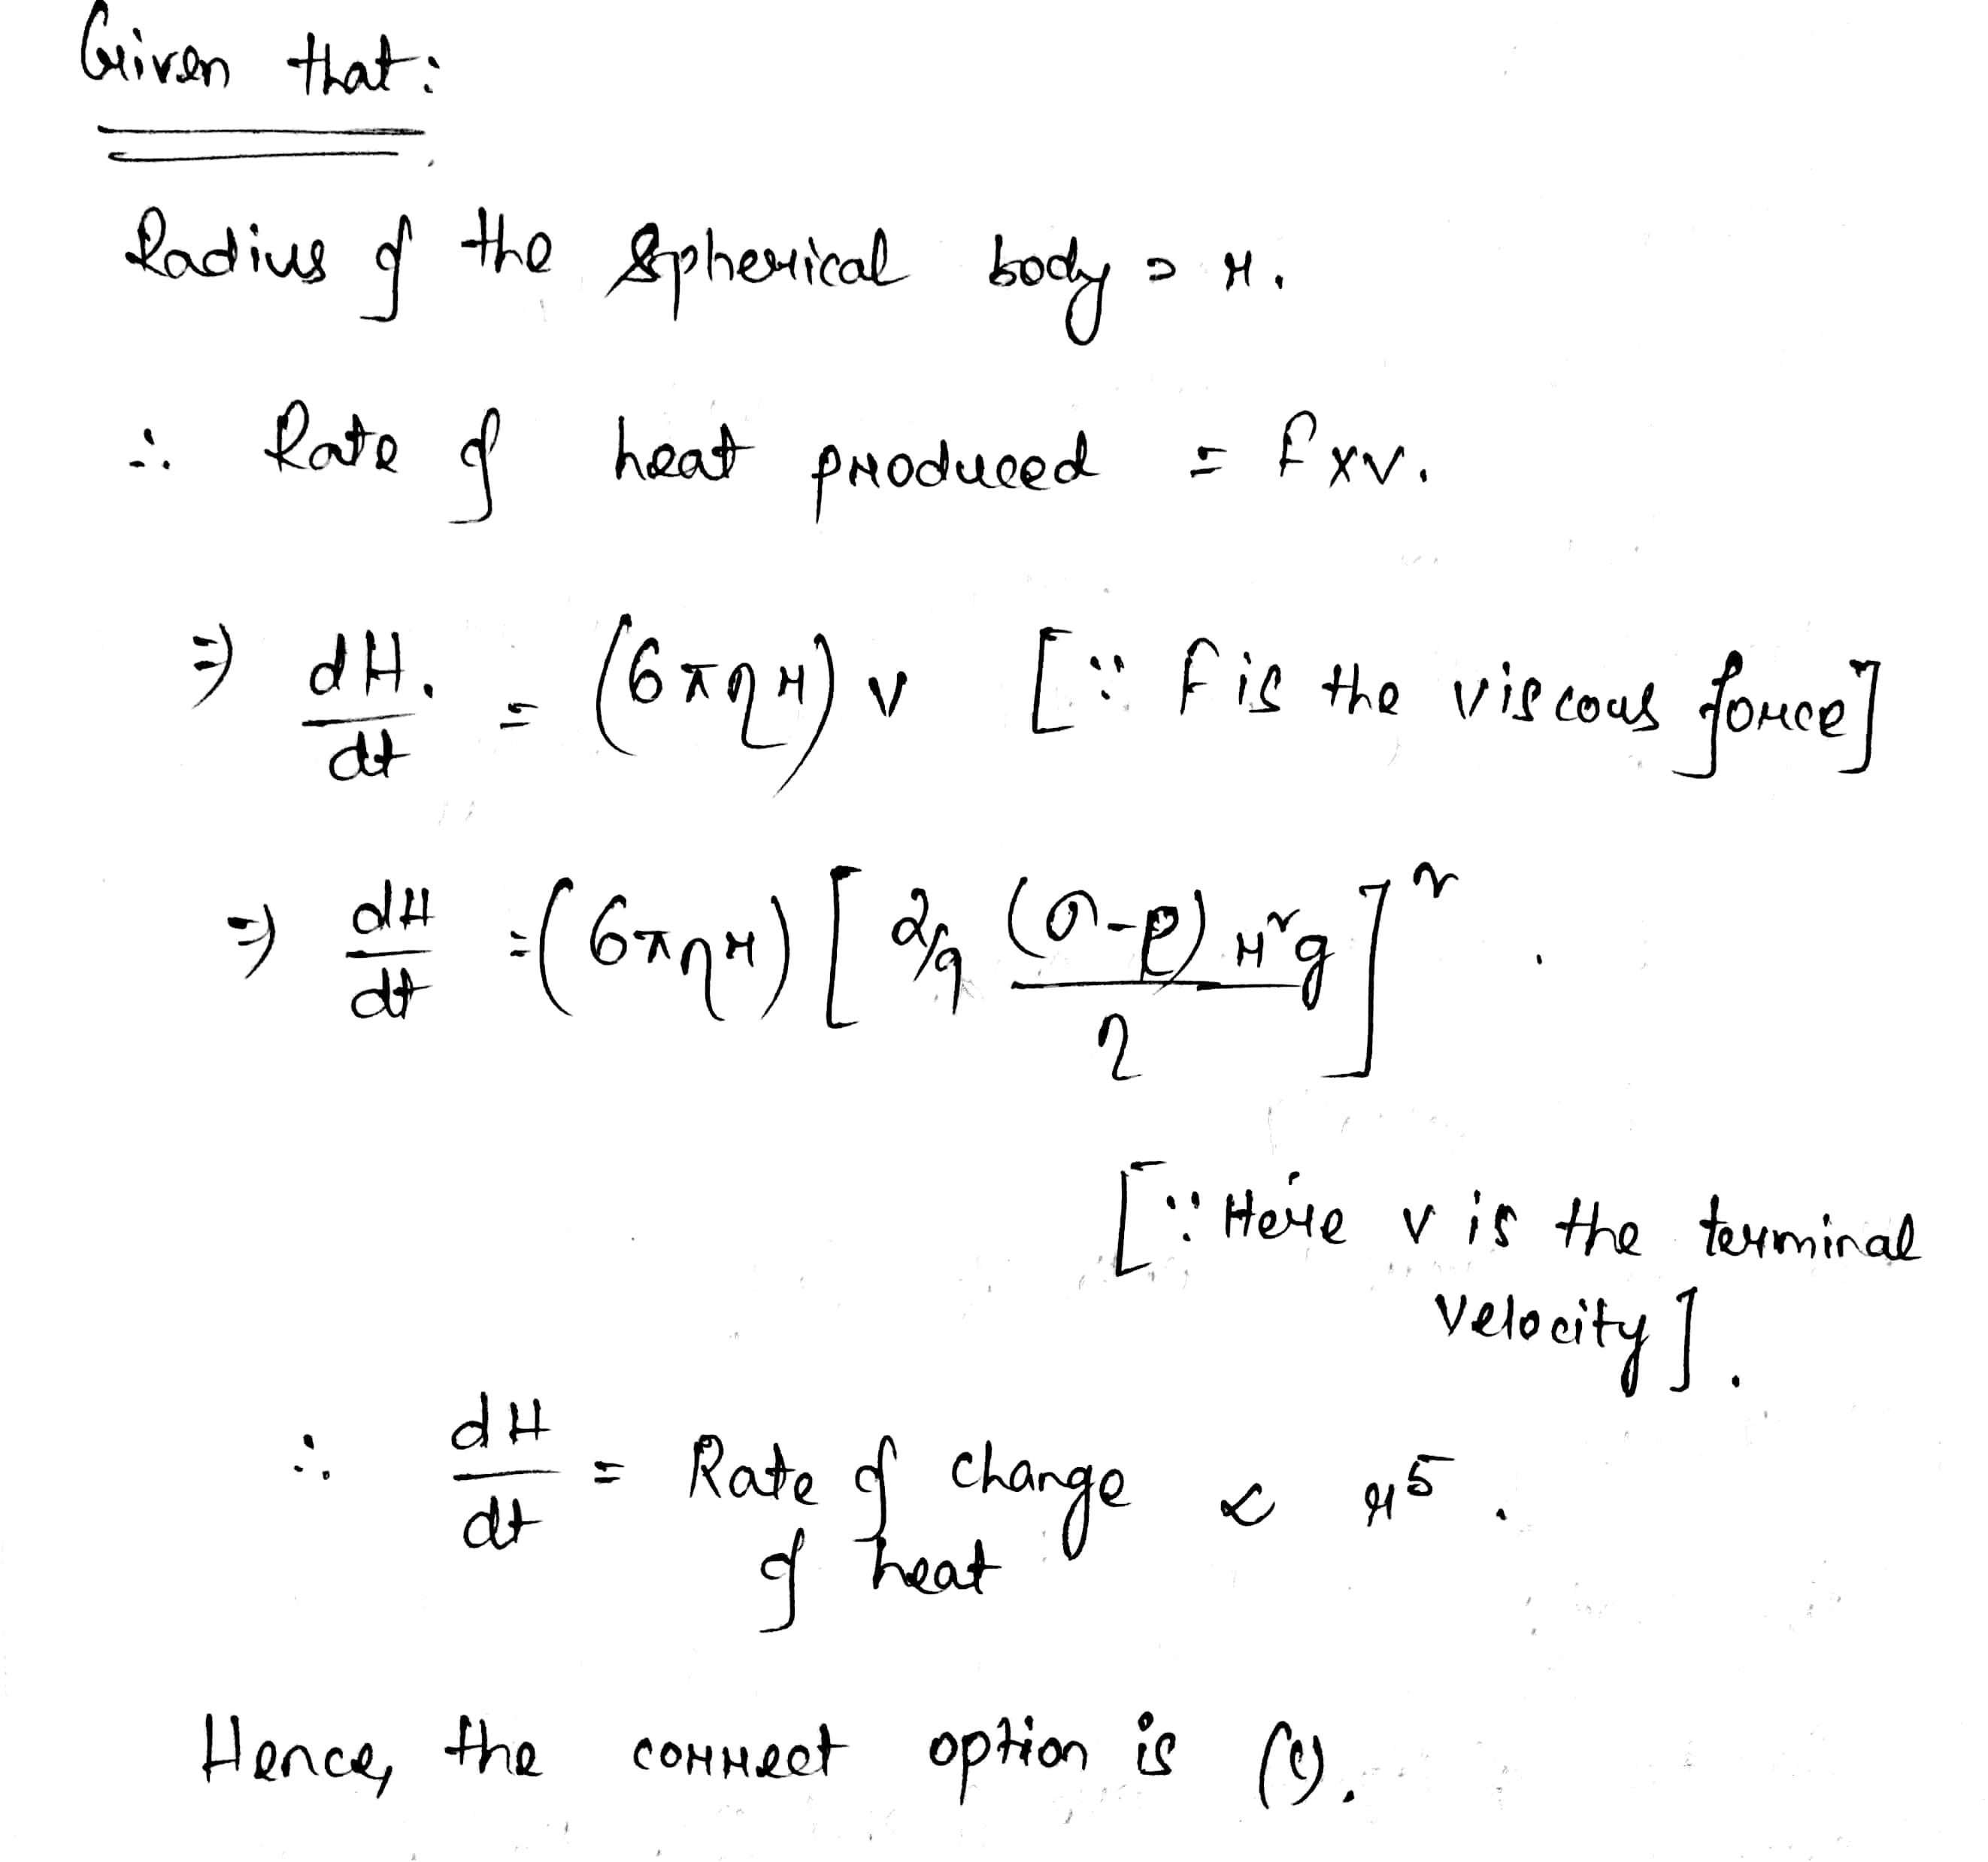 Given that:
Radius of the spherical body = r.
∴ Rate of heat produced = F×v.
⇒ dH/dt = (6πηr) v [∵ F is the viscous force]
⇒ dH/dt = (6πηr) [2/9 (σ-ρ) r²g / η]²
[∵ Here v is the terminal
velocity].
∴ dH/dt = Rate of change ∝ r⁵.
of heat
Hence, the correct option is (c).